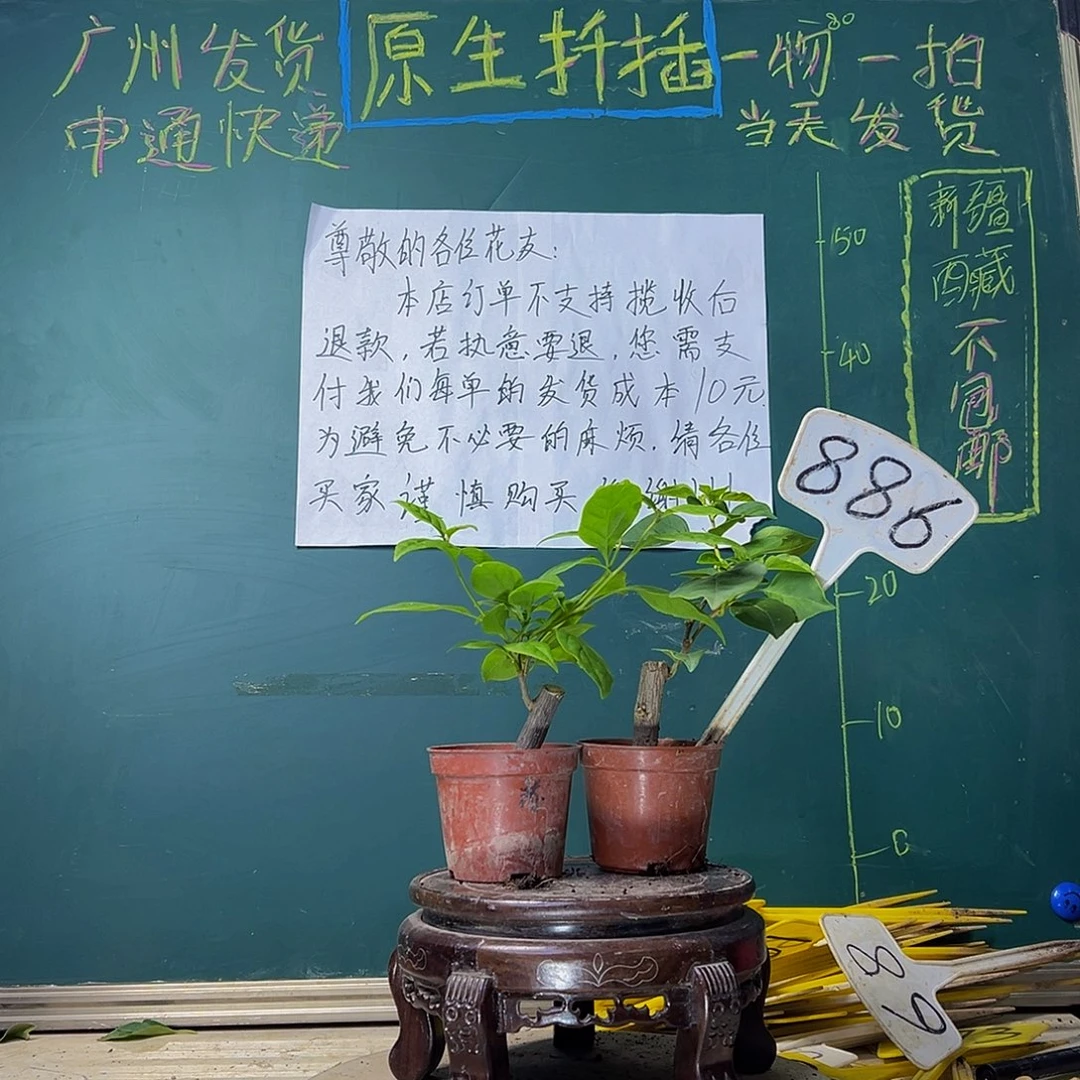 广州发货
申通快递
原生扦插
一物一拍
80
当天发货
新疆
西藏
不包邮
尊敬的各位花友：
本店订单不支持揽收后
退款，若执意要退，您需支
付我们每单的发货成本10元.
为避免不必要的麻烦.请各位
买家谨慎购买
50
40
20
10
0
886
89